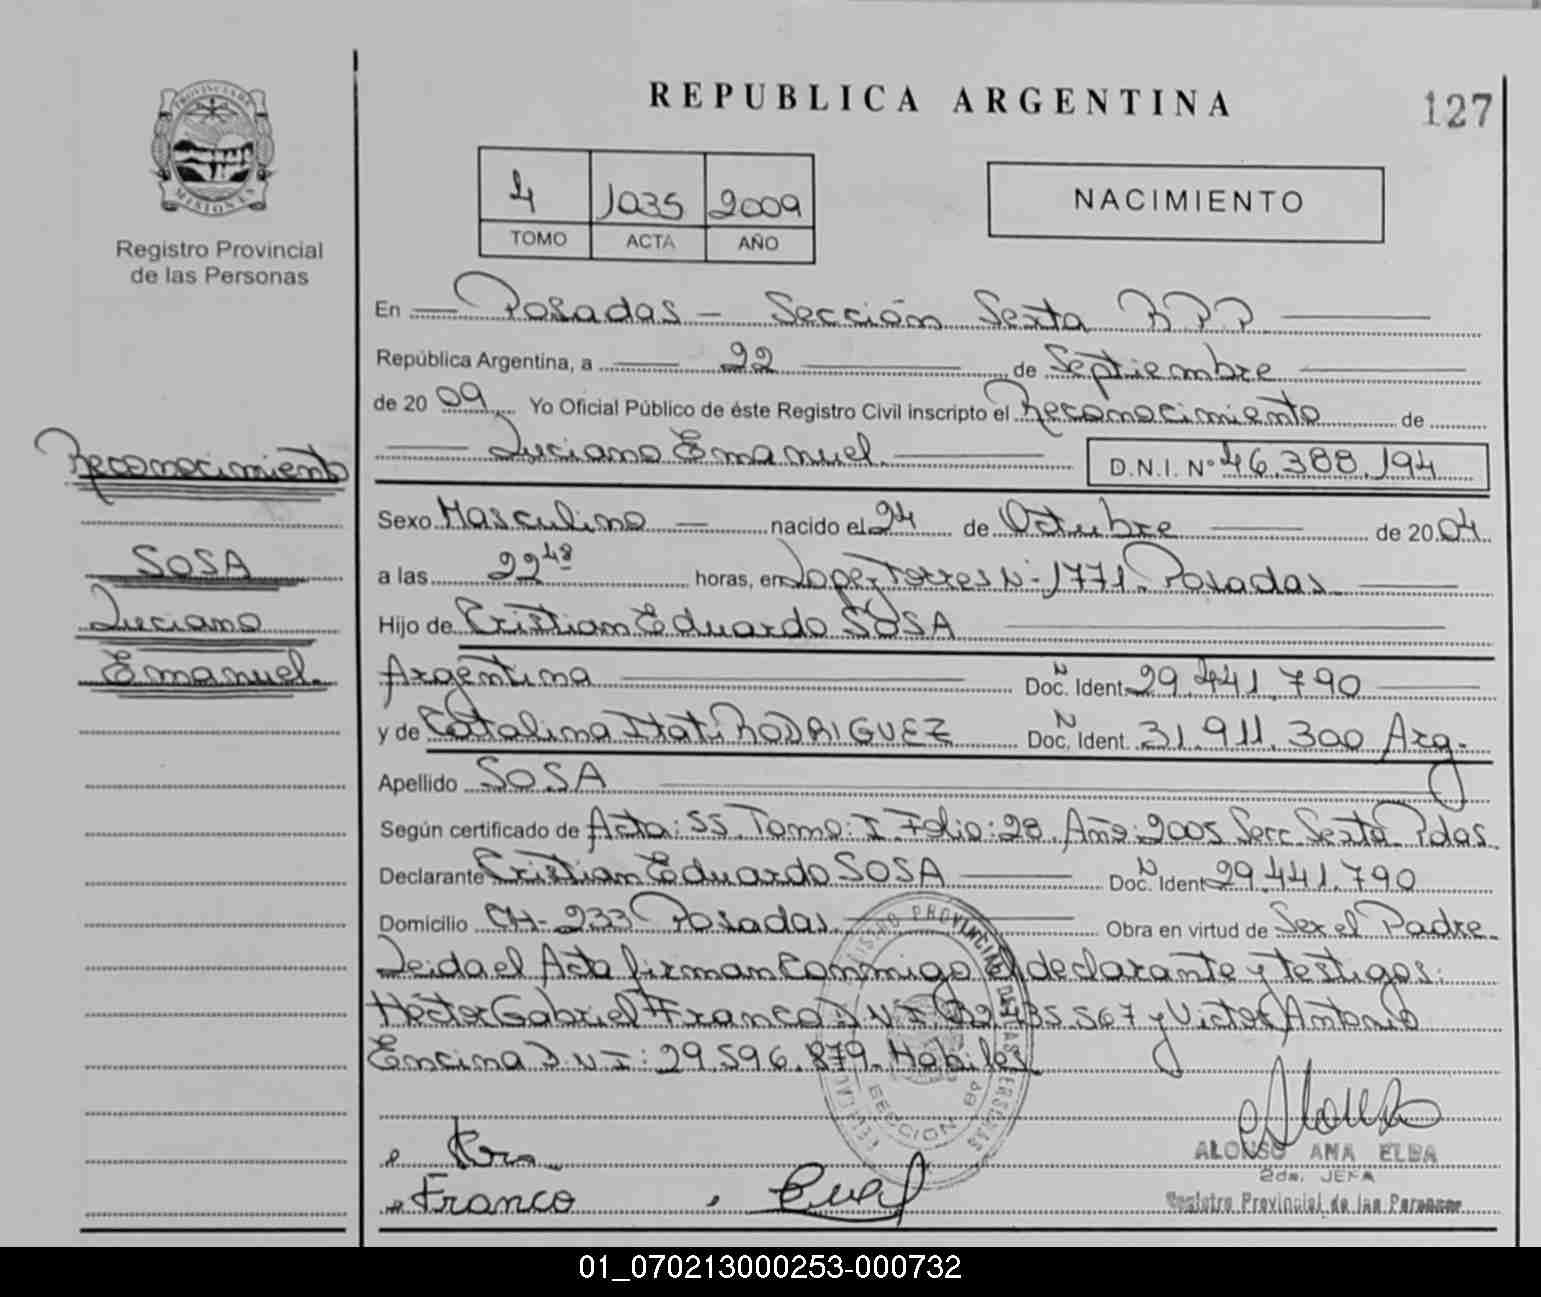 REPUBLICA ARGENTINA
127
PROVINCIA DE
MISIONES
Registro Provincial
de las Personas
4 1035 2009
TOMO ACTA AÑO
NACIMIENTO
En Posadas - Sección Sexta RPP
República Argentina, a 22 de Septiembre
de 2009 Yo Oficial Público de éste Registro Civil inscripto el Reconocimiento de
Luciano Emanuel D.N.I. Nº 46.388.194
Reconocimiento
SOSA
Luciano
Emanuel.
Sexo Masculino nacido el 24 de Octubre de 2004
a las 22 48 horas, en Lopez Torres N-1771-Posadas
Hijo de Cristian Eduardo SOSA
Argentina N Doc. Ident. 29.441.790
y de Catalina Itati RODRIGUEZ N Doc. Ident. 31.911.300 Arg.
Apellido SOSA
Según certificado de Acta: 55. Tomo: I. Folio: 28. Año: 2005 Secc Sexta Pdas.
Declarante Cristian Eduardo SOSA N Doc. Ident 29.441.790
Domicilio CH-233 Posadas. Obra en virtud de Ser el Padre.
Leida el Acta firman conmigo el declarante y testigos:
Héctor Gabriel Franco D.N.I. 435.567 y Victor Antonio
Encina D.N.I: 29.596.879. Habiles
SECCION 6ª
Alonso
ALONSO ANA ELBA
2da. JEFA
Registro Provincial de las Personas
Franco
01_070213000253-000732